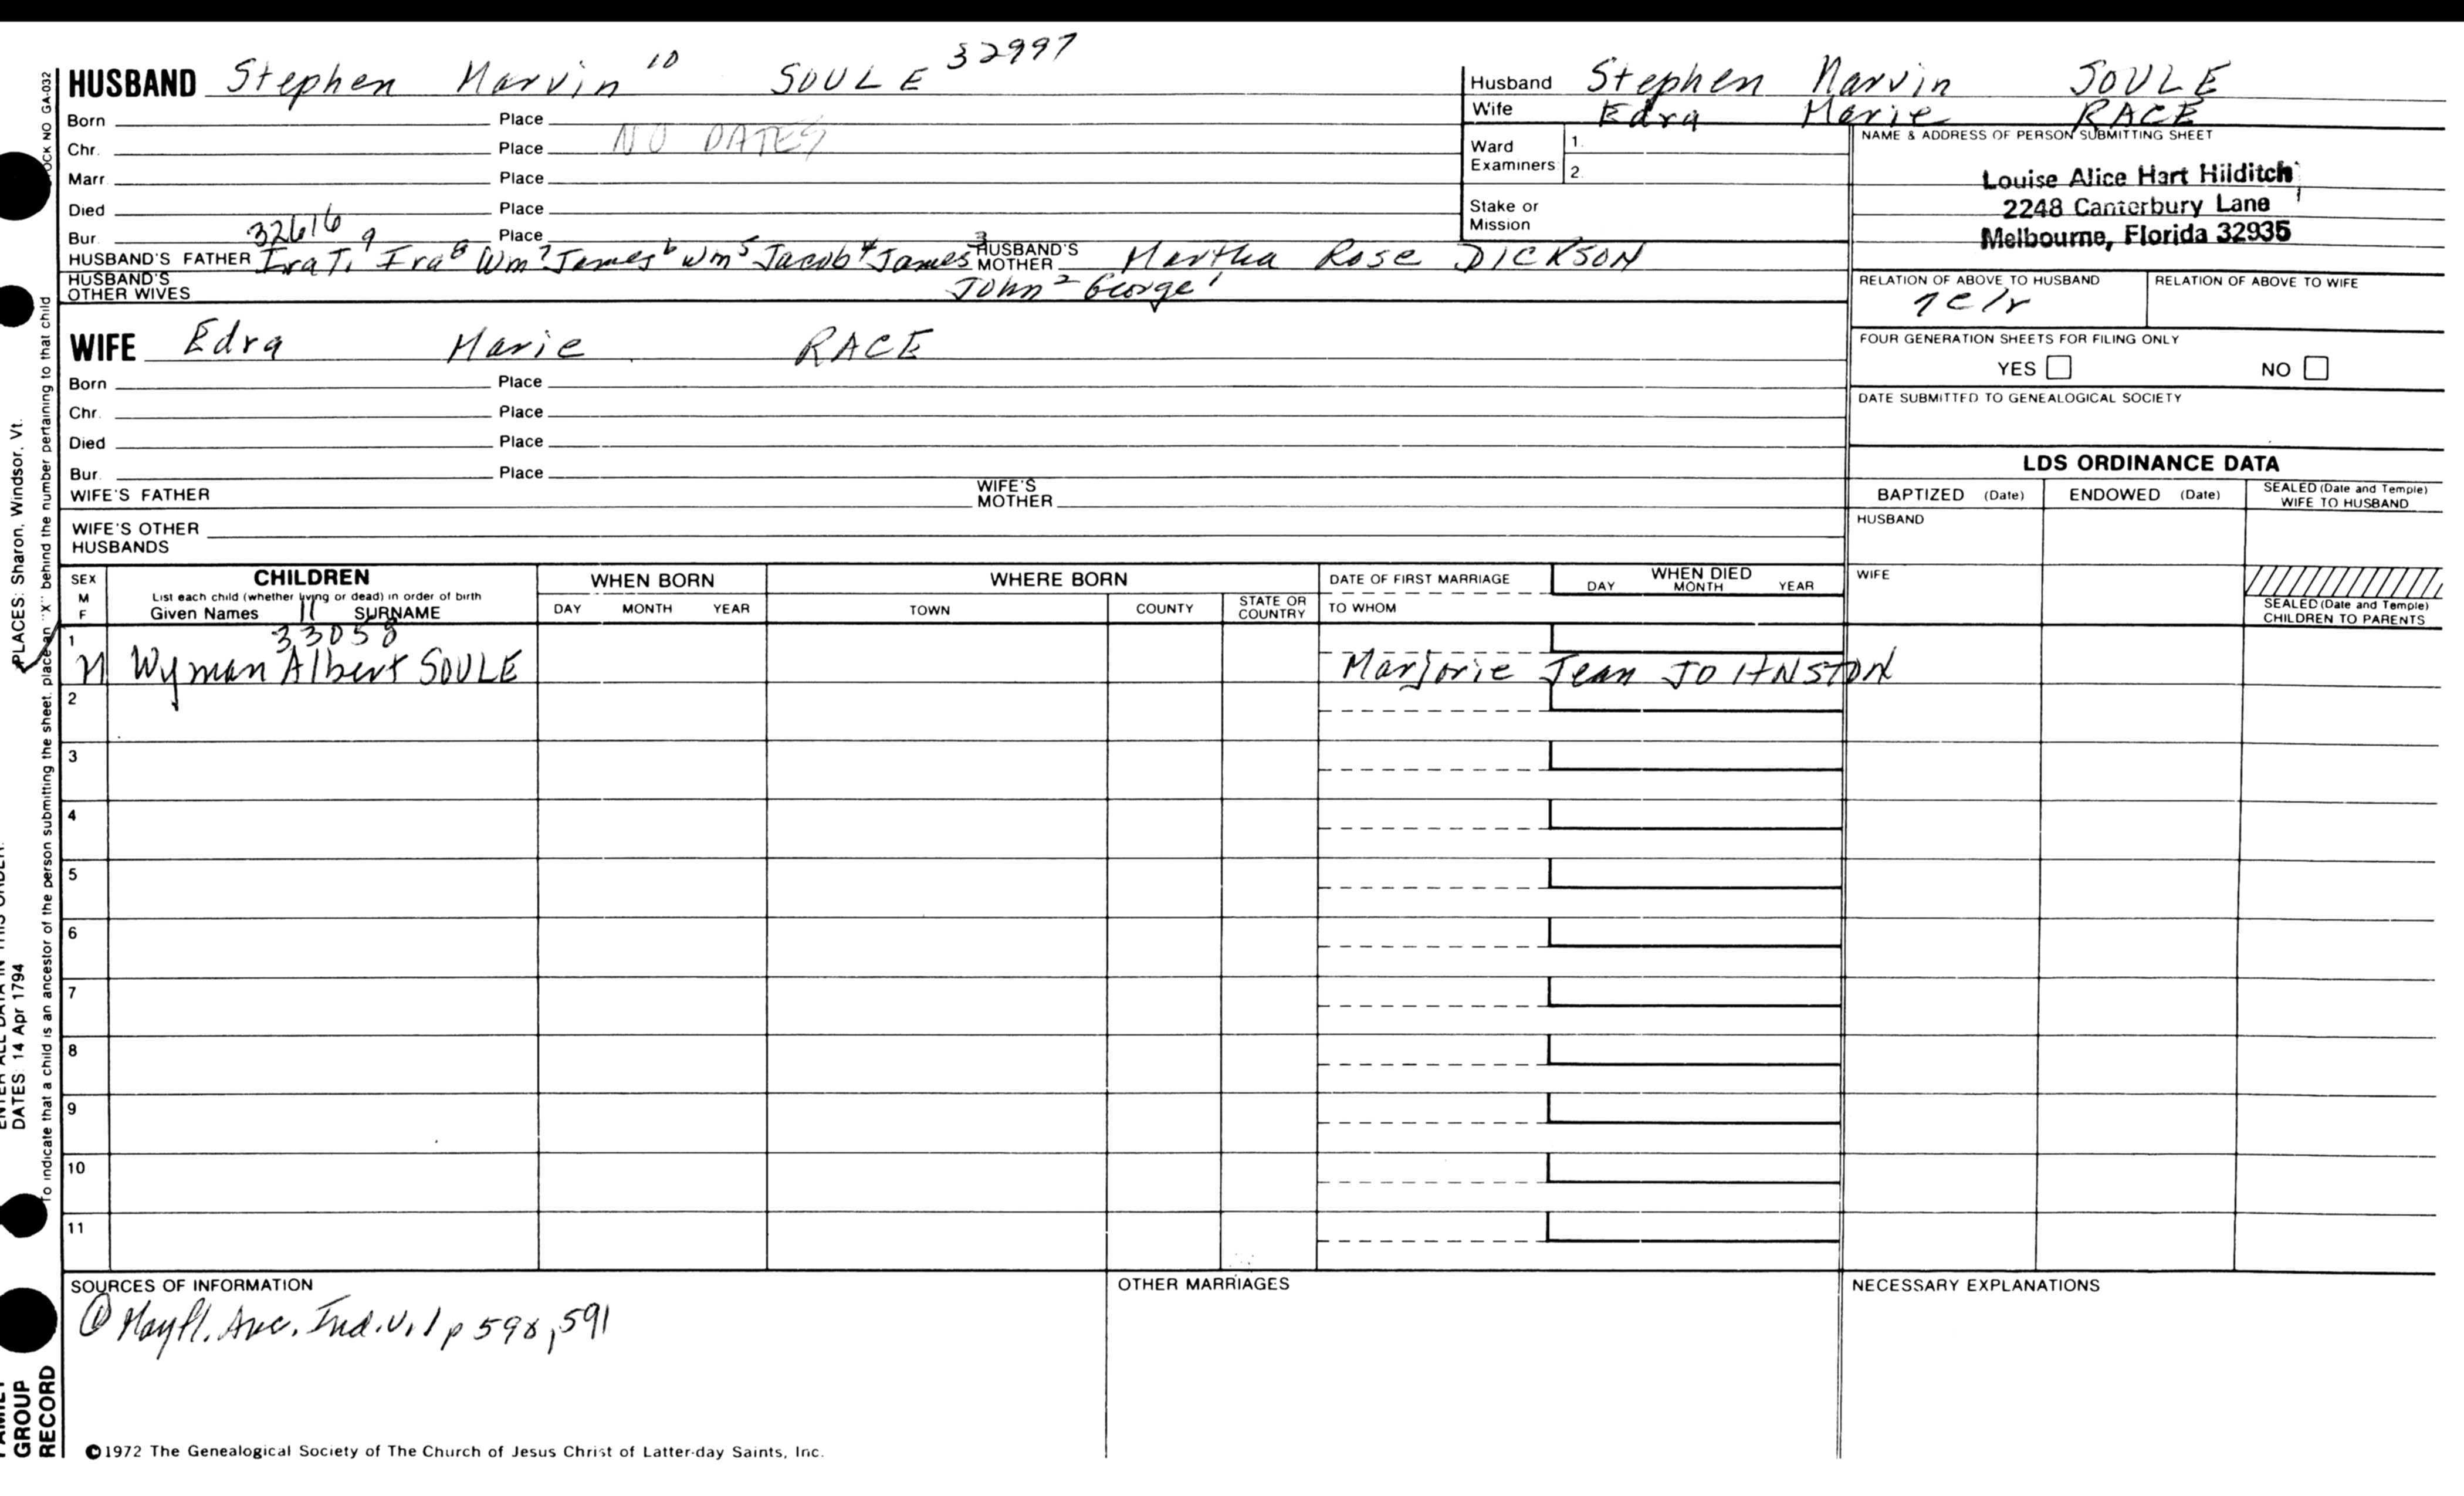 HUSBAND Stephen Marvin 10 SOULE 32997
Born Place
Chr. Place NO DATES
Marr. Place
Died Place
Bur. 32616 Place
HUSBAND'S FATHER Ira T. 9 Ira 8 Wm 7 James 6 Wm 5 Jacob 4 James 3 HUSBAND'S MOTHER Martha Rose DICKSON
HUSBAND'S OTHER WIVES John 2 George 1
Husband Stephen Marvin SOULE
Wife Edra Marie RACE
Ward Examiners 1.
2.
Stake or Mission
NAME & ADDRESS OF PERSON SUBMITTING SHEET
Louise Alice Hart Hilditch
2248 Canterbury Lane
Melbourne, Florida 32935
RELATION OF ABOVE TO HUSBAND RELATION OF ABOVE TO WIFE
FOUR GENERATION SHEETS FOR FILING ONLY
YES NO
DATE SUBMITTED TO GENEALOGICAL SOCIETY
WIFE Edra Marie RACE
Born Place
Chr. Place
Died Place
Bur. Place
WIFE'S FATHER WIFE'S MOTHER
WIFE'S OTHER HUSBANDS
LDS ORDINANCE DATA
BAPTIZED (Date) ENDOWED (Date) SEALED (Date and Temple) WIFE TO HUSBAND
HUSBAND
WIFE
SEALED (Date and Temple) CHILDREN TO PARENTS
SEX M F CHILDREN WHEN BORN WHERE BORN DATE OF FIRST MARRIAGE WHEN DIED
List each child (whether living or dead) in order of birth
Given Names 11 SURNAME DAY MONTH YEAR TOWN COUNTY STATE OR COUNTRY TO WHOM DAY MONTH YEAR
1 33058
M Wyman Albert SOULE Marjorie Jean JOHNSTON
2
3
4
5
6
7
8
9
10
11
SOURCES OF INFORMATION OTHER MARRIAGES NECESSARY EXPLANATIONS
① Mayfl. Anc. Ind. v.1 p 598, 591
©1972 The Genealogical Society of The Church of Jesus Christ of Latter-day Saints, Inc.
STOCK NO GA-032
To indicate that a child is an ancestor of the person submitting the sheet, place an "X" behind the number pertaining to that child
PLACES: Sharon, Windsor, Vt.
ENTER ALL DATA IN THIS ORDER:
DATES: 14 Apr 1794
FAMILY GROUP RECORD